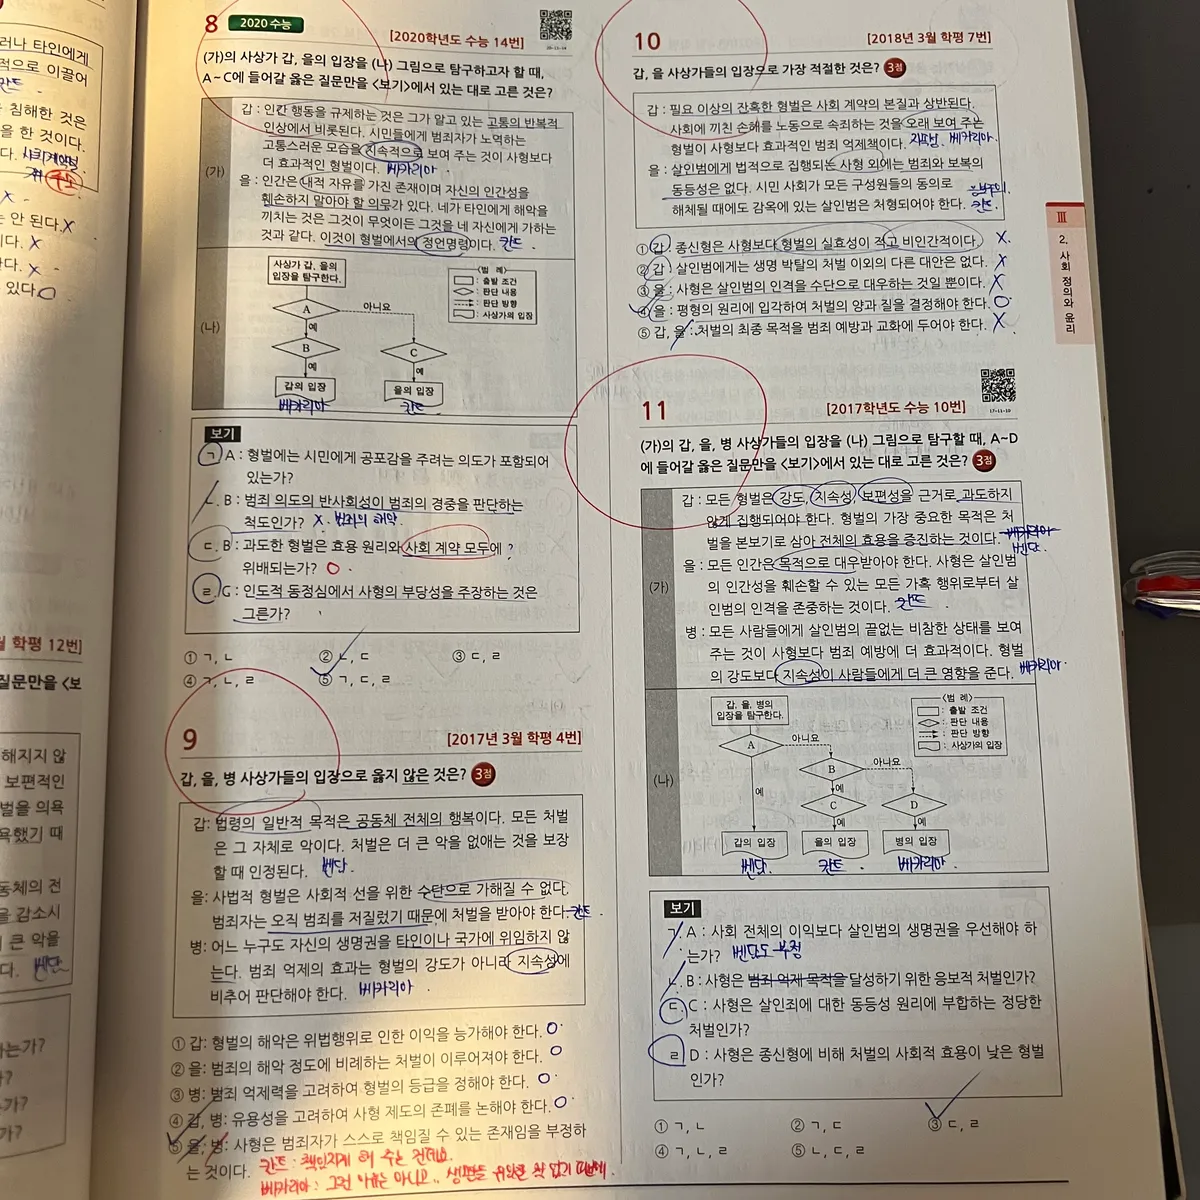 러나 타인에게
적으로 이끌어
칸트
침해한 것은
을 한 것이다.
안 된다. X
이다. X
다. X
있다. O
월 학평 12번]
질문만을 <보
해지지 않
보편적인
벌을 의욕
욕했기 때
동체의 전
을 감소시
큰 악을
다. 벤담
하는가?
가?
가?
8 2020 수능
[2020학년도 수능 14번]
(가)의 사상가 갑, 을의 입장을 (나) 그림으로 탐구하고자 할 때,
A~C에 들어갈 옳은 질문만을 <보기>에서 있는 대로 고른 것은?
(가)
갑 : 인간 행동을 규제하는 것은 그가 알고 있는 고통의 반복적
인상에서 비롯된다. 시민들에게 범죄자가 노역하는
고통스러운 모습을 지속적으로 보여 주는 것이 사형보다
더 효과적인 형벌이다. 베카리아
을 : 인간은 내적 자유를 가진 존재이며 자신의 인간성을
훼손하지 말아야 할 의무가 있다. 네가 타인에게 해악을
끼치는 것은 그것이 무엇이든 그것을 네 자신에게 가하는
것과 같다. 이것이 형벌에서의 정언명령이다. 칸트.
(나)
사상가 갑, 을의
입장을 탐구한다.
<범 례>
: 출발 조건
: 판단 내용
: 판단 방향
: 사상가의 입장
A
아니요
예
B
C
예
예
갑의 입장
을의 입장
베카리아
칸트
보기
ㄱ. A : 형벌에는 시민에게 공포감을 주려는 의도가 포함되어
있는가?
ㄴ. B : 범죄 의도의 반사회성이 범죄의 경중을 판단하는
척도인가? X. 범죄의 해악.
ㄷ. B : 과도한 형벌은 효용 원리와 사회 계약 모두에
위배되는가? O.
ㄹ. C : 인도적 동정심에서 사형의 부당성을 주장하는 것은
그른가?
① ㄱ, ㄴ ② ㄴ, ㄷ ③ ㄷ, ㄹ
④ ㄱ, ㄴ, ㄹ ⑤ ㄱ, ㄷ, ㄹ
9
[2017년 3월 학평 4번]
갑, 을, 병 사상가들의 입장으로 옳지 않은 것은? 3점
갑: 법령의 일반적 목적은 공동체 전체의 행복이다. 모든 처벌
은 그 자체로 악이다. 처벌은 더 큰 악을 없애는 것을 보장
할 때 인정된다. 벤담.
을: 사법적 형벌은 사회적 선을 위한 수단으로 가해질 수 없다.
범죄자는 오직 범죄를 저질렀기 때문에 처벌을 받아야 한다. 칸트.
병: 어느 누구도 자신의 생명권을 타인이나 국가에 위임하지 않
는다. 범죄 억제의 효과는 형벌의 강도가 아니라 지속성에
비추어 판단해야 한다. 베카리아.
① 갑: 형벌의 해악은 위법행위로 인한 이익을 능가해야 한다. O
② 을: 범죄의 해악 정도에 비례하는 처벌이 이루어져야 한다. O
③ 병: 범죄 억제력을 고려하여 형벌의 등급을 정해야 한다. O
④ 갑, 병: 유용성을 고려하여 사형 제도의 존폐를 논해야 한다. O
⑤ 을, 병: 사형은 범죄자가 스스로 책임질 수 있는 존재임을 부정하
는 것이다. 칸트 : 책임지게 해 주는 건데요.
베카리아 : 그런 이유는 아니고.. 생명을 위임한 적 없기 때문에.
10
[2018년 3월 학평 7번]
갑, 을 사상가들의 입장으로 가장 적절한 것은? 3점
갑 : 필요 이상의 잔혹한 형벌은 사회 계약의 본질과 상반된다.
사회에 끼친 손해를 노동으로 속죄하는 것을 오래 보여 주는
형벌이 사형보다 효과적인 범죄 억제책이다. 베카리아.
을 : 살인범에게 법적으로 집행되는 사형 외에는 범죄와 보복의
동등성은 없다. 시민 사회가 모든 구성원들의 동의로
해체될 때에도 감옥에 있는 살인범은 처형되어야 한다. 칸트.
① 갑 : 종신형은 사형보다 형벌의 실효성이 적고 비인간적이다. X.
② 갑 : 살인범에게는 생명 박탈의 처벌 이외의 다른 대안은 없다. X
③ 을 : 사형은 살인범의 인격을 수단으로 대우하는 것일 뿐이다. X
④ 을 : 평형의 원리에 입각하여 처벌의 양과 질을 결정해야 한다. O
⑤ 갑, 을 : 처벌의 최종 목적을 범죄 예방과 교화에 두어야 한다. X
Ⅲ
2. 사회 정의와 윤리
11
[2017학년도 수능 10번]
17-11-10
(가)의 갑, 을, 병 사상가들의 입장을 (나) 그림으로 탐구할 때, A~D
에 들어갈 옳은 질문만을 <보기>에서 있는 대로 고른 것은? 3점
(가)
갑 : 모든 형벌은 강도, 지속성, 보편성을 근거로 과도하지
않게 집행되어야 한다. 형벌의 가장 중요한 목적은 처
벌을 본보기로 삼아 전체의 효용을 증진하는 것이다. 베카리아
벤담.
을 : 모든 인간은 목적으로 대우받아야 한다. 사형은 살인범
의 인간성을 훼손할 수 있는 모든 가혹 행위로부터 살
인범의 인격을 존중하는 것이다. 칸트
병 : 모든 사람들에게 살인범의 끝없는 비참한 상태를 보여
주는 것이 사형보다 범죄 예방에 더 효과적이다. 형벌
의 강도보다 지속성이 사람들에게 더 큰 영향을 준다. 베카리아.
(나)
갑, 을, 병의
입장을 탐구한다.
<범 례>
: 출발 조건
: 판단 내용
: 판단 방향
: 사상가의 입장
A
아니요
B
아니요
예
예
C
D
예
예
갑의 입장
을의 입장
병의 입장
벤담.
칸트.
베카리아.
보기
ㄱ. A : 사회 전체의 이익보다 살인범의 생명권을 우선해야 하
는가? 벤담도 부정
ㄴ. B : 사형은 범죄 억제 목적을 달성하기 위한 응보적 처벌인가?
ㄷ. C : 사형은 살인죄에 대한 동등성 원리에 부합하는 정당한
처벌인가?
ㄹ. D : 사형은 종신형에 비해 처벌의 사회적 효용이 낮은 형벌
인가?
① ㄱ, ㄴ ② ㄱ, ㄷ ③ ㄷ, ㄹ
④ ㄱ, ㄴ, ㄹ ⑤ ㄴ, ㄷ, ㄹ